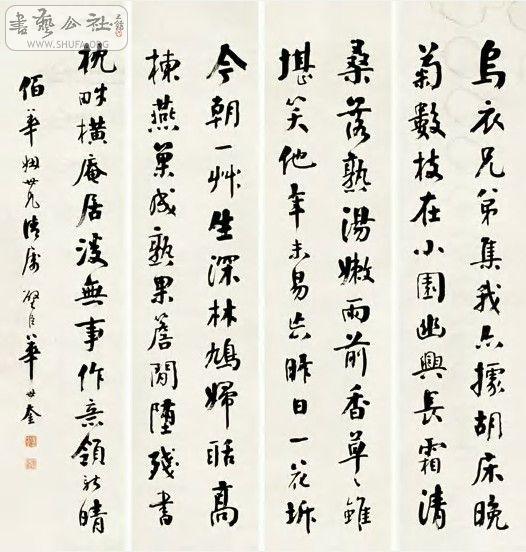 書藝公社
WWW.SHUFA.ORG
烏衣兄弟集我亦據胡床晚
菊數枝在小園幽興長霜清
桑落熟湯嫩雨前香草〻雖
堪笑他年未易忘昨日一花坼
今朝一艸生深林鳩婦聒高
棟燕巢成熟果簷間墮殘書
枕畔橫庵居無事作意領新晴
佰華姻世兄法屬 璧臣華世奎